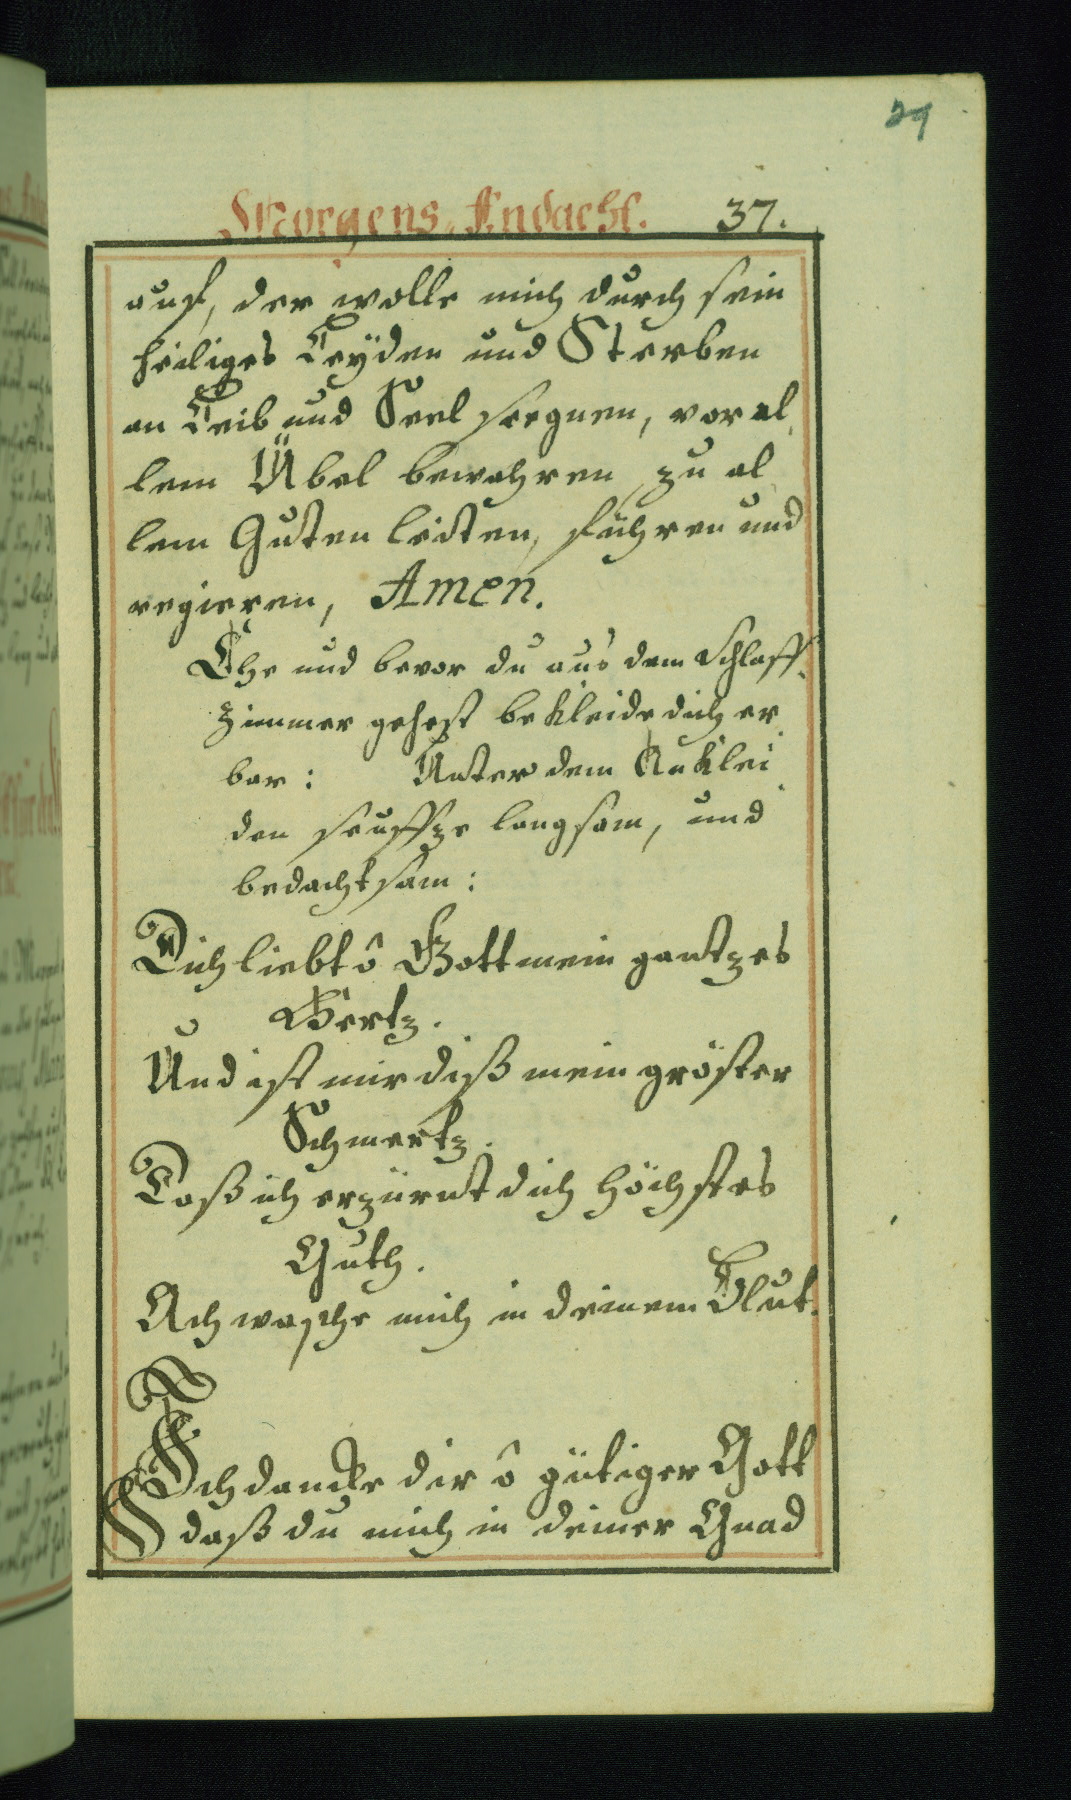 29
Morgens-Andacht. 37.
auf, der wolle mich durch sein
heiliges Leyden und Sterben
an Leib und Seel seegnen, vor al-
lem Übel bewahren, zu al-
lem Guten leiten, führen und
regieren, Amen.
Ehe und bevor du aus dem Schlaff-
zimmer gehest bekleide dich er-
bar: Unter dem Anklei-
den seuffze langsam, und
bedachtsam:
Dich liebt ô Gott mein gantzes
Hertz.
Und ist mir diß mein gröster
Schmertz.
Daß ich erzürnt dich höchstes
Guth.
Ach wasche mich in deinem Blut.
Ich dancke dir ô gütiger Gott
daß du mich in deiner Gnad